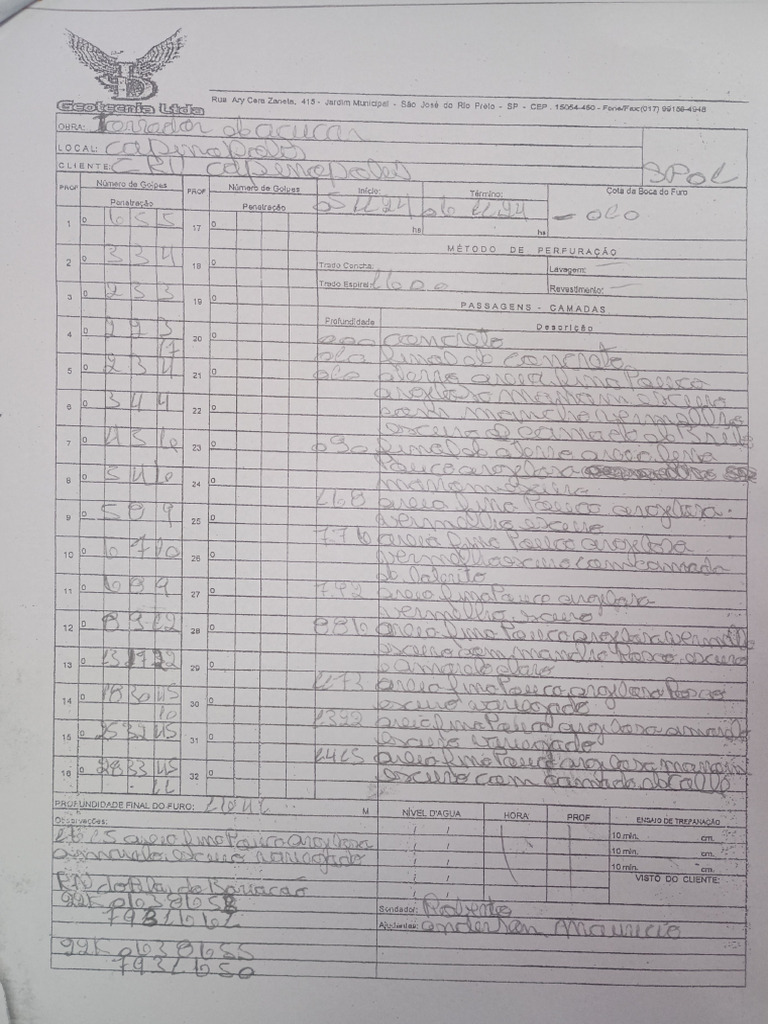 Geotecnia Ltda
Rua Ary Cera Zaneta, 415 - Jardim Municipal - São José do Rio Preto - SP - CEP. 15054-460 - Fone/Fax:(017) 99156-4948
OBRA: açucar
LOCAL: Capinopolis
CLIENTE: CRV Capinopoles
PROF Número de Golpes Penetração PROF Número de Golpes Penetração
Início: 05 11 24 hs Término: 06 11 24 hs Cota da Boca do Furo
MÉTODO DE PERFURAÇÃO
Trado Concha: Lavagem:
Trado Espiral: Revestimento:
PASSAGENS - CAMADAS
Profundidade Descrição
1 0 6 5 5 17 0
2 0 3 3 4 18 0
3 0 2 3 3 19 0
4 0 2 2 3 20 0
17
5 0 2 3 4 21 0
6 0 3 4 4 22 0
7 0 4 5 6 23 0
8 0 5 4 6 24 0
9 0 5 8 9 25 0
10 0 6 7 10 26 0
11 0 6 8 9 27 0
12 0 8 9 12 28 0
13 0 29 0
14 0 18 30 45 30 0
10
15 0 25 32 45 31 0
16 0 28 33 45 32 0
11
000 concreto
final do concreto
aterro areia fina Pouco
argilosa marrom escuro
com mancha vermelho
escuro e camada de Brita
090 final do aterro areia fina
Pouco argilosa
marrom escuro
168 areia fina Pouco argilosa
vermelho escuro
776 areia fina Pouco argilosa
vermelho escuro com camada
de
792 areia fina Pouco argilosa
vermelho escuro
886 areia fina Pouco argilosa vermelho
escuro com mancha Roxo escuro
e amarelo claro
1173 areia fina Pouco argilosa Roxo
escuro variegado
1392 areia fina Pouco argilosa amarelo
escuro variegado
1415 areia fina Pouco argilosa marrom
escuro com camada
PROFUNDIDADE FINAL DO FURO: M
NÍVEL D'AGUA HORA PROF ENSAIO DE TREPANAÇÃO
10 min. cm.
10 min. cm.
10 min. cm.
VISTO DO CLIENTE:
Observações:
areia fina Pouco argilosa
amarelo escuro variegado
22K 0638658
7931662
22K 0638655
7931650
Sondador: Roberto
Ajudantes: anderson Mauricio